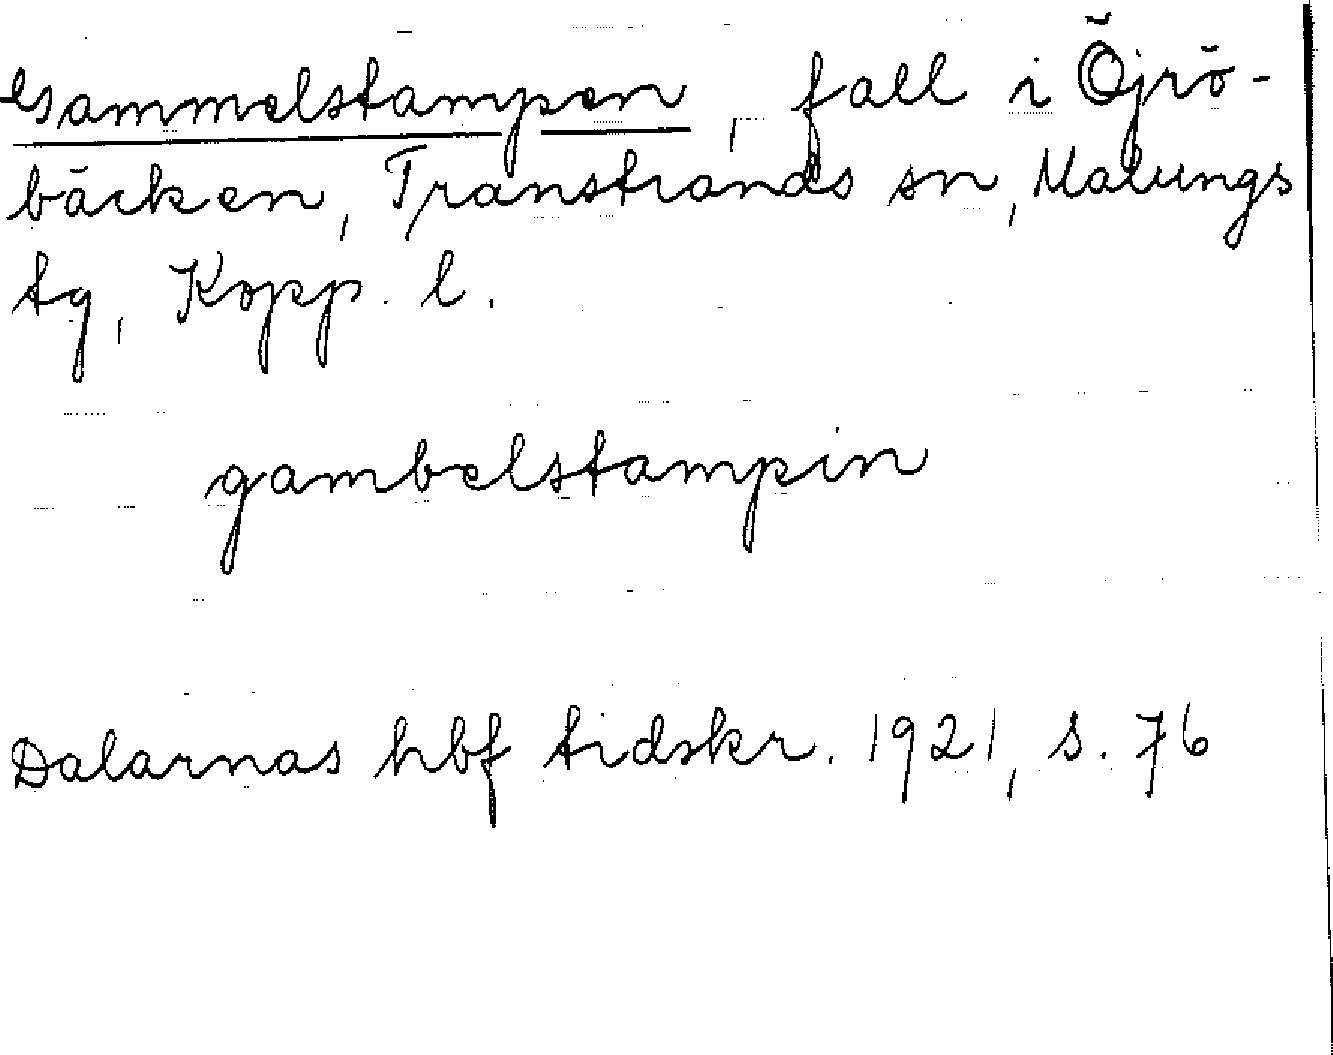 Gammelstampen, fall i Öjrö-
bäcken, Transtrands sn, Malungs
tg, Kopp. l.
gambelstampin
Dalarnas hbf tidskr. 1921, s. 76